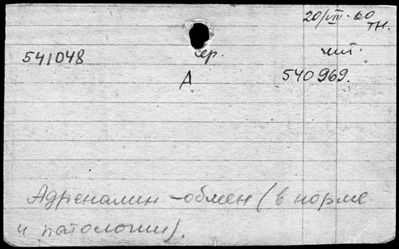 20/VIII-60
тн.
541048 сер. чит.
А 540969.
Адреналин-обмен (в норме
и патологии).